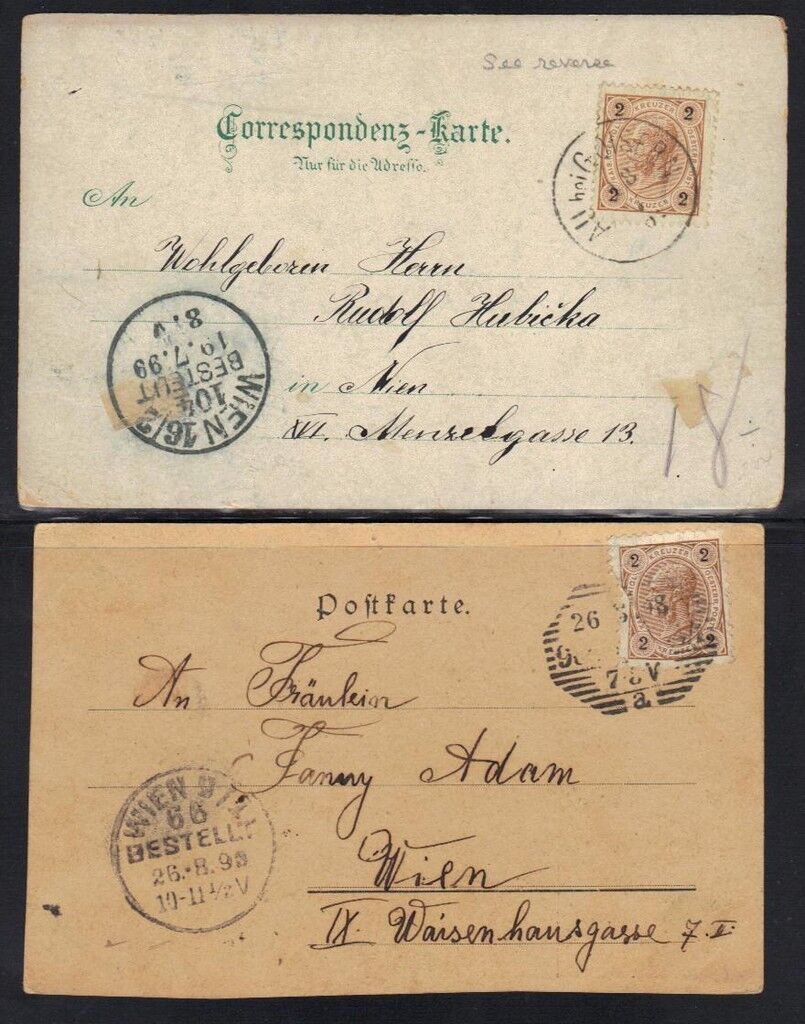 See reverse
Correspondenz-Karte.
Nur für die Adresse.
2 KREUZER 2
2 KREUZER 2
All bei
An
Wohlgeboren Herrn
Rudolf Hubička
in Wien
XVI. Menzelgasse 13.
WIEN 16/2
104
BESTELLT
19.7.99
8. V
18.-
Postkarte.
2 KREUZER 2
2 2
26 8 98
7-8 V
a
An Fräulein
Fanny Adam
Wien
IX. Waisenhausgasse 7. I.
WIEN 9/
66
BESTELLT
26.8.98
10-11½V